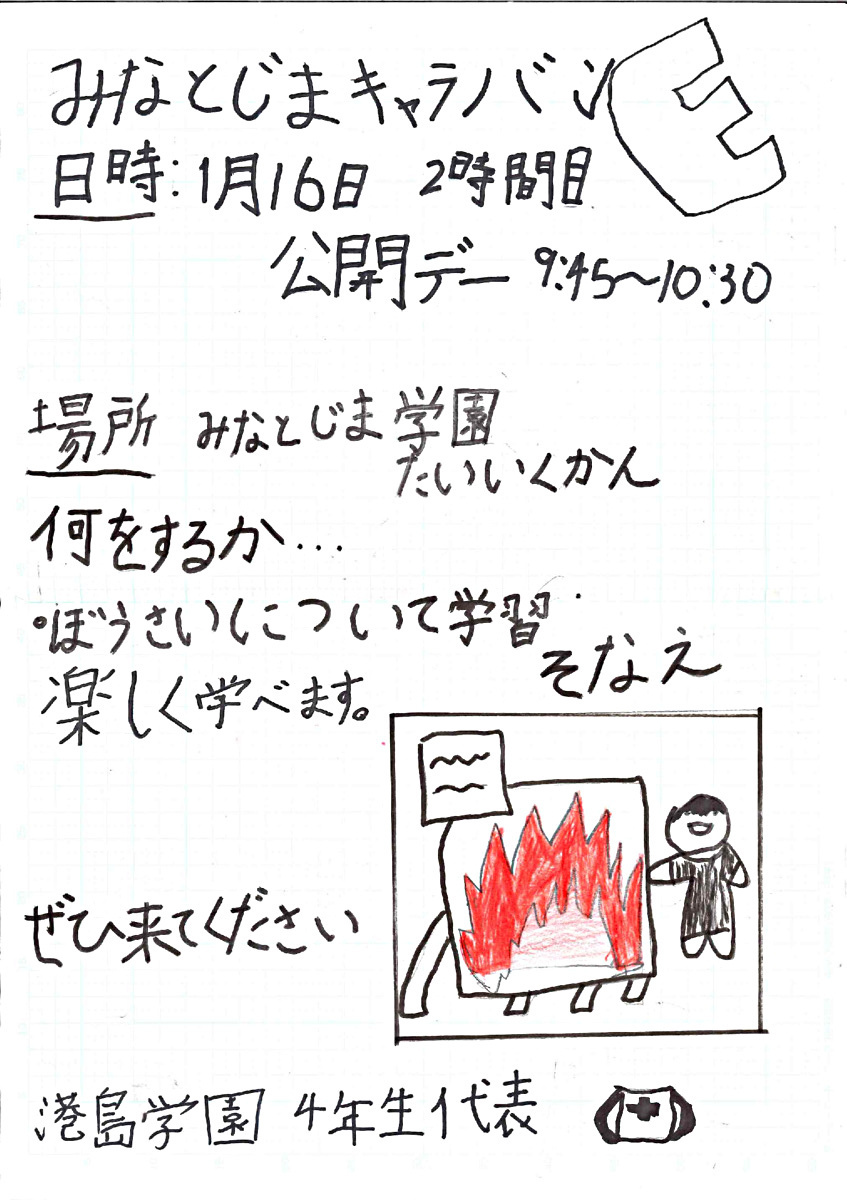 みなとじまキャラバン
日時:1月16日 2時間目
公開デー 9:45〜10:30
場所 みなとじま学園
たいいくかん
何をするか…
•ぼうさいについて学習
そなえ
楽しく学べます。
ぜひ来てください
港島学園 4年生代表